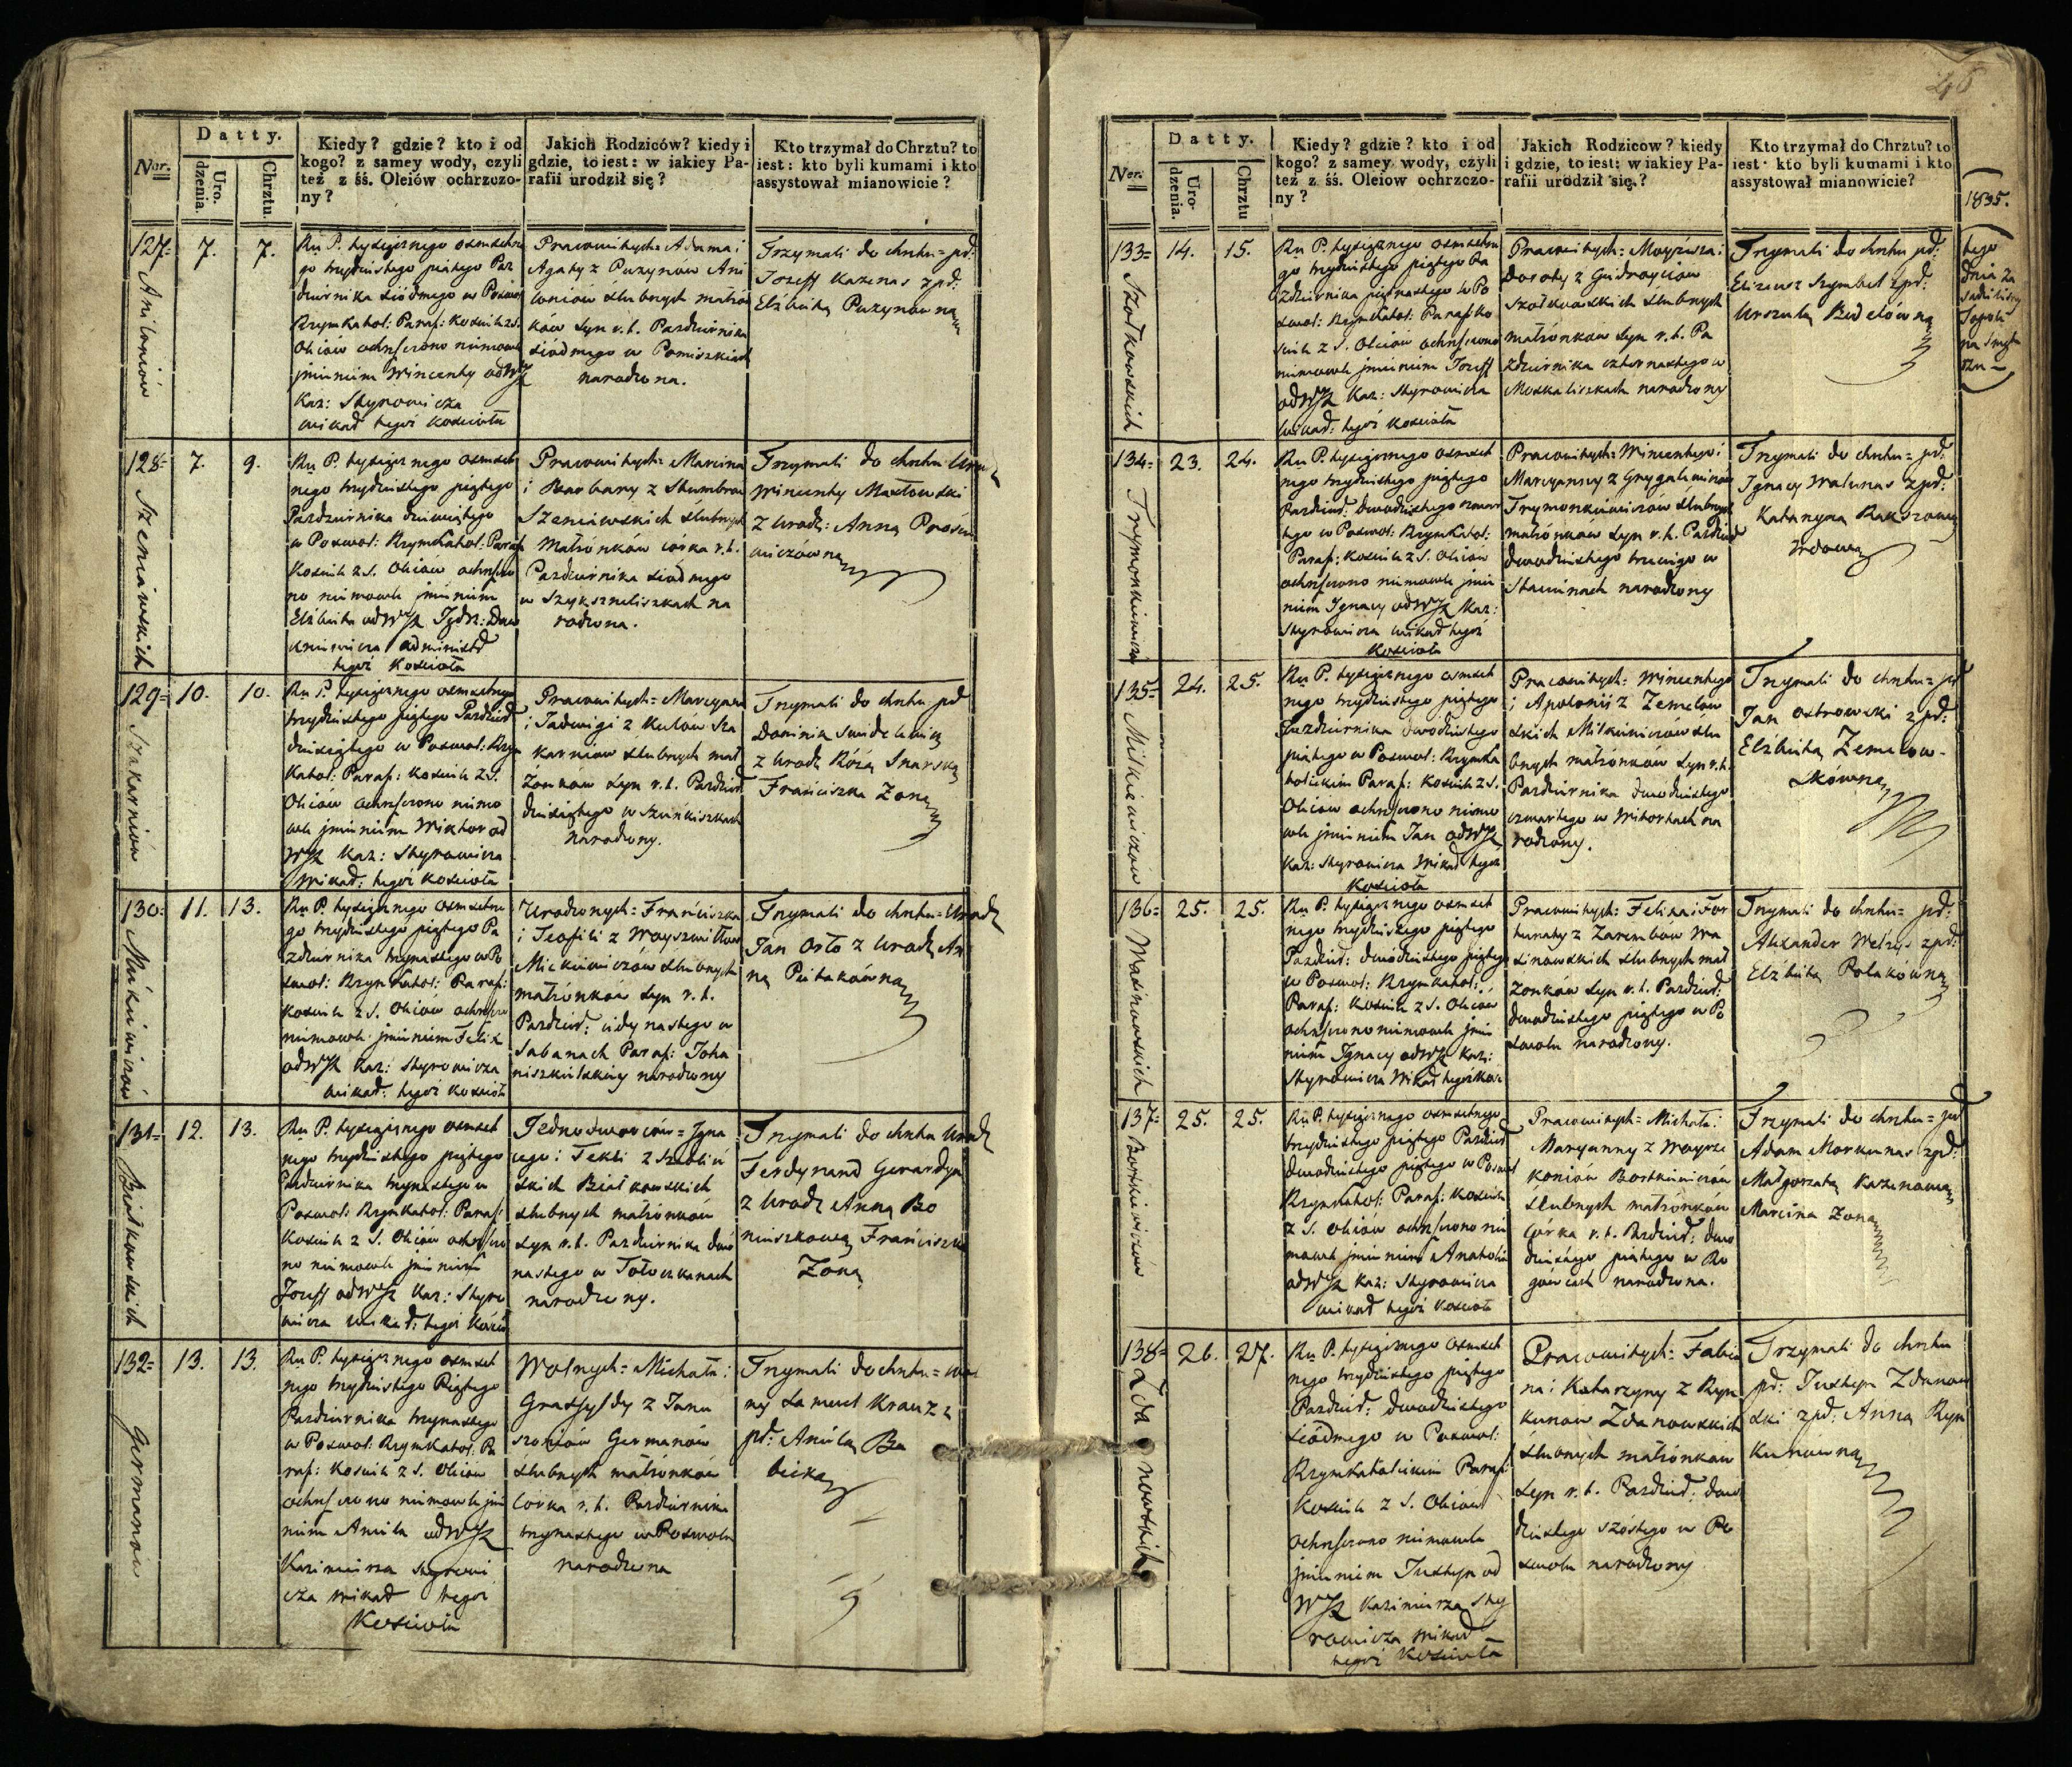 Datty.
Nor.
Uro-
dzenia.
Chrztu.
Kiedy? gdzie? kto i od
kogo? z samey wody, czyli
też z śś. Oleiów ochrzczo-
ny?
Jakich Rodziców? kiedy i
gdzie, to iest: w iakiey Pa-
rafii urodził się?
Kto trzymał do Chrztu? to
iest: kto byli kumami i kto
assystował mianowicie?
127=
Aniloniów
7.
7.
Ru P. tysiącznego osmsetne
go trzydziestego piątego Paz
dziernika siódmego w Poswol:
RzymKatol: Paraf: Kosciele z S.
Oleiów ochrzczono niemowle
imieniem Wincenty od WJX
Kaz: Skyrowicza
wikar: tegoż Koscioła
Pracowitych= Adama i
Agaty z Puzynów Ani
loniów slubnych małżon
ków Syn r. t. Pazdziernika
siódmego w Pomiszkiach
narodzona.
Trzymali do chrztu= pd:
Jozeff Kazenas z pd:
Elżbietą Puzynowną
128=
Szeniawskich
7.
9.
Ru P. tysiącznego osmset
nego trzydziestego piątego
Pazdziernika dziewiątego
w Poswol: RzymKatol: Paraf:
Kosciele z S. Oleiów ochrzczo
no niemowle imieniem
Elżbieta od WJX
administr
tegoż Koscioła
Pracowitych= Marcina
i Barbary z Stumbrow
Szeniawskich slubnych
Małżonków córka r. t.
Pazdziernika siódmego
w Szykszneliszkach na
rodzona.
Trzymali do chrztu Urodz
Wincenty Masłowski
z Urodz: Anną Prośce
wiczówną
129=
Szakarniów
10.
10.
Ru P. tysiącznego osmsetnego
trzydziestego piątego Pazdzier
dziesiątego w Poswol: Rzym
Katol: Paraf: Kosciele z S.
Oleiów ochrzczono niemo
wle imieniem Wiktor od
WJX Kaz: Skyrowicza
Wikar: tegoż Koscioła
Pracowitych= Marcyana
i Jadwigi z Kulów Sza
karniów slubnych mał
żonków Syn r. t. Pazdzier
dziesiątego w Szunkiszkach
narodzony.
Trzymali do chrztu pd
Dominik
z Urodz Różą Snarską
Franciszka Żoną
130=
Mickiewiczów
11.
13.
Ru P. tysiącznego osmsetne
go trzydziestego piątego Pa
zdziernika trzynastego w Po
swol: RzymKatol: Paraf:
Kosciele z S. Oleiów ochrzczo
niemowle imieniem Felix
od WJX Kaz: Skyrowicza
wikar: tegoż Koscioła
Urodzonych= Franciszka
i Teofili z Woyszwiłłow
Mickiewiczów slubnych
małżonków Syn r. t.
Pazdzier: iedynastego w
Sabanach Paraf: Joha
niszkielskiey narodzony
Trzymali do chrztu= Urodz
Jan Osło z Urodz An
ną Pietakówną
131=
Białkowskich
12.
13.
Ru P. tysiącznego osmset
nego trzydziestego piątego
Pazdziernika trzynastego w
Poswol: RzymKatol: Paraf:
Kosciele z S. Oleiów ochrzczo
no niemowle imieniem
Jozeff od WJX Kaz: Skyro
wicza wikar: tegoż Kościo
Jednodworców= Igna
cego i Tekli z
skich Białkowskich
slubnych małżonków
Syn r. t. Pazdziernika dwó
nastego w Tołoczkanach
narodzony.
Trzymali do chrztu Urodz
Ferdynand Gerardyn
z Urodz Anną Bo
niuszkową Franciszka
Żoną
132=
Germanow
13.
13.
Ru P. tysiącznego osmset
nego trzydziestego Piątego
Pazdziernika trzynastego
w Poswol: RzymKatol: Pa
raf: Kosciele z S. Oleiów
ochrzczono niemowle imie
niem Aniela od WJX
Kazimierza Skyrowi
cza wikar tegoż
Kosciola
Wolnych= Michała i
Grassyldy z Janu
szoniów Germanów
slubnych małżonków
Corka r. t. Pazdziernika
trzynastego w Poswolu
narodzona
Trzymali do chrztu= wol
ny Samuel Krauz z
pd: Anielą Ba
licką
46
Datty.
Nor.
Uro-
dzenia.
Chrztu
Kiedy? gdzie? kto i od
kogo? z samey wody, czyli
też z śś. Oleiow ochrzczo-
ny?
Jakich Rodzicow? kiedy
i gdzie, to iest: w iakiey Pa-
rafii urodził się?
Kto trzymał do Chrztu? to
iest: kto byli kumami i kto
assystował mianowicie?
1835.
tego
dnia za
133=
Szołkowskich
14.
15.
Ru P. tysiącznego osmsetne
go trzydziestego piątego Pa
zdziernika piętnastego w Po
swol: RzymKatol: Paraf: Ko
sciele z S. Oleiów ochrzczono
niemowle imieniem Jozeff
od WJX Kaz: Skyrowicza
wikar: tegoż Kosciola
Pracowitych= Moyżesza i
Doroty z Giedroyciow
Szołkowskich slubnych
małżonkow Syn r. t. Pa
zdziernika czternastego w
Moskaliszkach narodzony
Trzymali do chrztu pd:
Elizeusz Szymbel z pd:
Urszulą Budelówną
134=
Trzymonkiewiczow
23.
24.
Ru P. tysiącznego osmset
nego trzydziestego piątego
Pazdzier: dwudziestego czwar
tego w Poswol: RzymKatol:
Paraf: Kosciele z S. Oleiow
ochrzczono niemowle imie
niem Ignacy od WJX Kaz:
Skyrowicza wikar tegoż
Kosciola
Pracowitych= Wincentego i
Maryanny z Grygaliuniow
Trzymonkiewiczów slubnych
małżonków Syn r. t. Pazdzier
dwudziestego trzeciego w
Staciunach narodzony
Trzymali do chrztu= pd:
Ignacy Walunas z pd:
Katarzyna
Wdową
135=
Mitkiewiczów
24.
25.
Ru P. tysiącznego osmset
nego trzydziestego piątego
Pazdziernika dwudziestego
piątego w Poswol: RzymKa
tolickim Paraf: Kosciele z S.
Oleiow ochrzczono niemo
wle imieniem Jan od WJX
Kaz: Skyrowicza Wikar tegoż
Kosciola
Pracowitych: Wincentego
i Apolonii z Zemelow
skich Mitkiewiczów slu
bnych małżonków Syn r. t.
Pazdziernika dwudziestego
czwartego w Witortach na
rodzony.
Trzymali do chrztu= pd
Jan Ostrowski z pd:
Elżbietą Zemelow-
skówną
136=
Wasinowskich
25.
25.
Ru P. tysiącznego osmset
nego trzydziestego piątego
Pazdzier: dwudziestego piątego
w Poswol: RzymKatol:
Paraf: Kosciele z S. Oleiów
ochrzczono niemowle imie
niem Ignacy od WJX Kaz:
Skyrowicza Wikar tegoż Kos:
Pracowitych: Felixa i For
tunaty z Zarembow Wa
sinowskich slubnych mał
żonków Syn r. t. Pazdzier:
dwudziestego piątego w Po
swolu narodzony.
Trzymali do chrztu= pd:
Alexander z pd:
Elżbietą Polakówną
137=
Bortkiewiczów
25.
25.
Ru P. tysiącznego osmsetnego
trzydziestego piątego Pazdzier
dwudziestego piątego w Poswol
RzymKatol: Paraf: Kosciele
z S. Oleiów ochrzczono nie
mowle imieniem Anatolia
od WJX Kaz: Skyrowicza
wikar tegoż Kosciola
Pracowitych= Michała i
Maryanny z Woyrze
koniów Bortkiewiczów
slubnych małżonków
Córka r. t. Pazdzier: dwu
dziestego piątego w Ro
gówcach narodzona.
Trzymali do chrztu= pd
Adam Morkunas z pd:
Małgorzatą Kazenową
Marcina Żoną
138=
Zdanowskich
26.
27.
Ru P. tysiącznego osmset
nego trzydziestego piątego
Pazdzier: dwudziestego
siódmego w Poswol:
RzymKatolickim Paraf
Kosciele z S. Oleiów
ochrzczono niemowle
imieniem Justyn od
WJX Kazimierza Sky
rowicza wikar
tegoż Kosciola
Pracowitych: Fabia
na i Katarzyny z Rym
kunow Zdanowskich
slubnych małżonkow
Syn r. t. Pazdzier: dwu
dziestego szóstego w Po
swolu narodzony
Trzymali do chrztu
pd: Justyn Zdanow
ski z pd: Anną Rym
kunowną